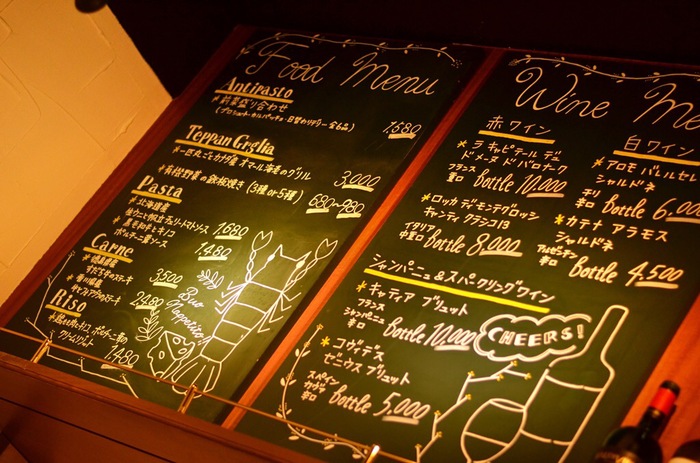 Food Menu
Antipasto
* 前菜盛り合わせ
(プロシュート・カルパッチョ・日替わりデリー 全6品)
1,680
Teppan Greglia
* オマール海老のグリル
3,000
* 有機野菜の鉄板焼き (3種 or 5種)
680~980
Pasta
* 北海道産
生ウニと帆立
1,680
ポルチーニ茸ソース
1,480
Carne
すだち牛のステーキ
3,500
* 香川県産
キャンティアクラのステーキ
2,980
Riso
クリームリゾット
1,480
Buo
Wine Me
赤ワイン
* ラ キャピテール デュ
ドメーヌ ド バロナーク
フランス
重口
Bottle 10,000
* ロッカ デ モンテグロッシ
キャンティ クラシコ 13
イタリア
中重口
Bottle 8,000
シャンパーニュ & スパークリングワイン
* キャティア ブリュット
フランス
シャンパーニュ
辛口
Bottle 10,000
* コヴィデス
ゼニウス ブリュット
スペイン
カヴァ
辛口
Bottle 5,000
白ワイン
* アロモ バレルセレ
シャルドネ
チリ
辛口
Bottle 6,000
* カテナ アラモス
シャルドネ
アルゼンチン
辛口
Bottle 4,500
CHEERS!